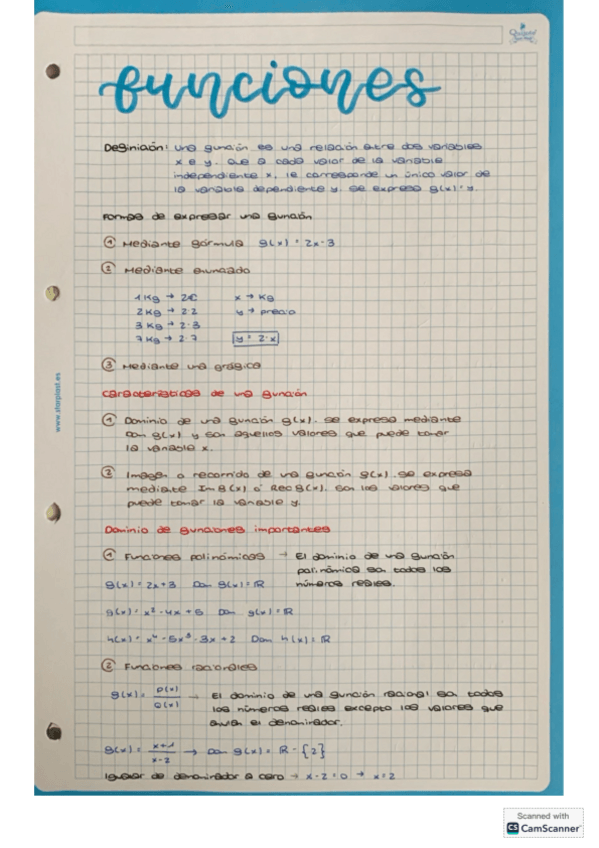 funciones
Definición: una función es una relación entre dos variables
x e y. que a cada valor de la variable
independiente x, le corresponde un único valor de
la variable dependiente y. se expresa f(x)=y.
Formas de expresar una función
① Mediante fórmula f(x) = 2x-3
② Mediante enunciado
1 Kg → 2€ x → Kg
2 Kg → 2·2 y → precio
3 Kg → 2·3
7 Kg → 2·7 y = 2·x
③ Mediante una gráfica
Características de una función
① Dominio de una función f(x). se expresa mediante
Dom f(x) y son aquellos valores que puede tomar
la variable x.
② Imagen o recorrido de una función f(x). se expresa
mediante Im f(x) o Rec f(x). son los valores que
puede tomar la variable y.
Dominio de funciones importantes
① Funciones polinómicas → El dominio de una función
polinómica son todos los
números reales.
f(x) = 2x+3 Dom f(x) = ℝ
g(x) = x² - 4x + 5 Dom g(x) = ℝ
h(x) = x⁴ - 5x³ - 3x + 2 Dom h(x) = ℝ
② Funciones racionales
f(x) = P(x)/Q(x) → El dominio de una función racional son todos
los números reales excepto los valores que
anulan el denominador.
f(x) = x+1/x-2 → Dom f(x) = ℝ - {2}
Igualar de denominador a cero → x-2=0 → x=2
www.starplast.es
Scanned with
CS CamScanner